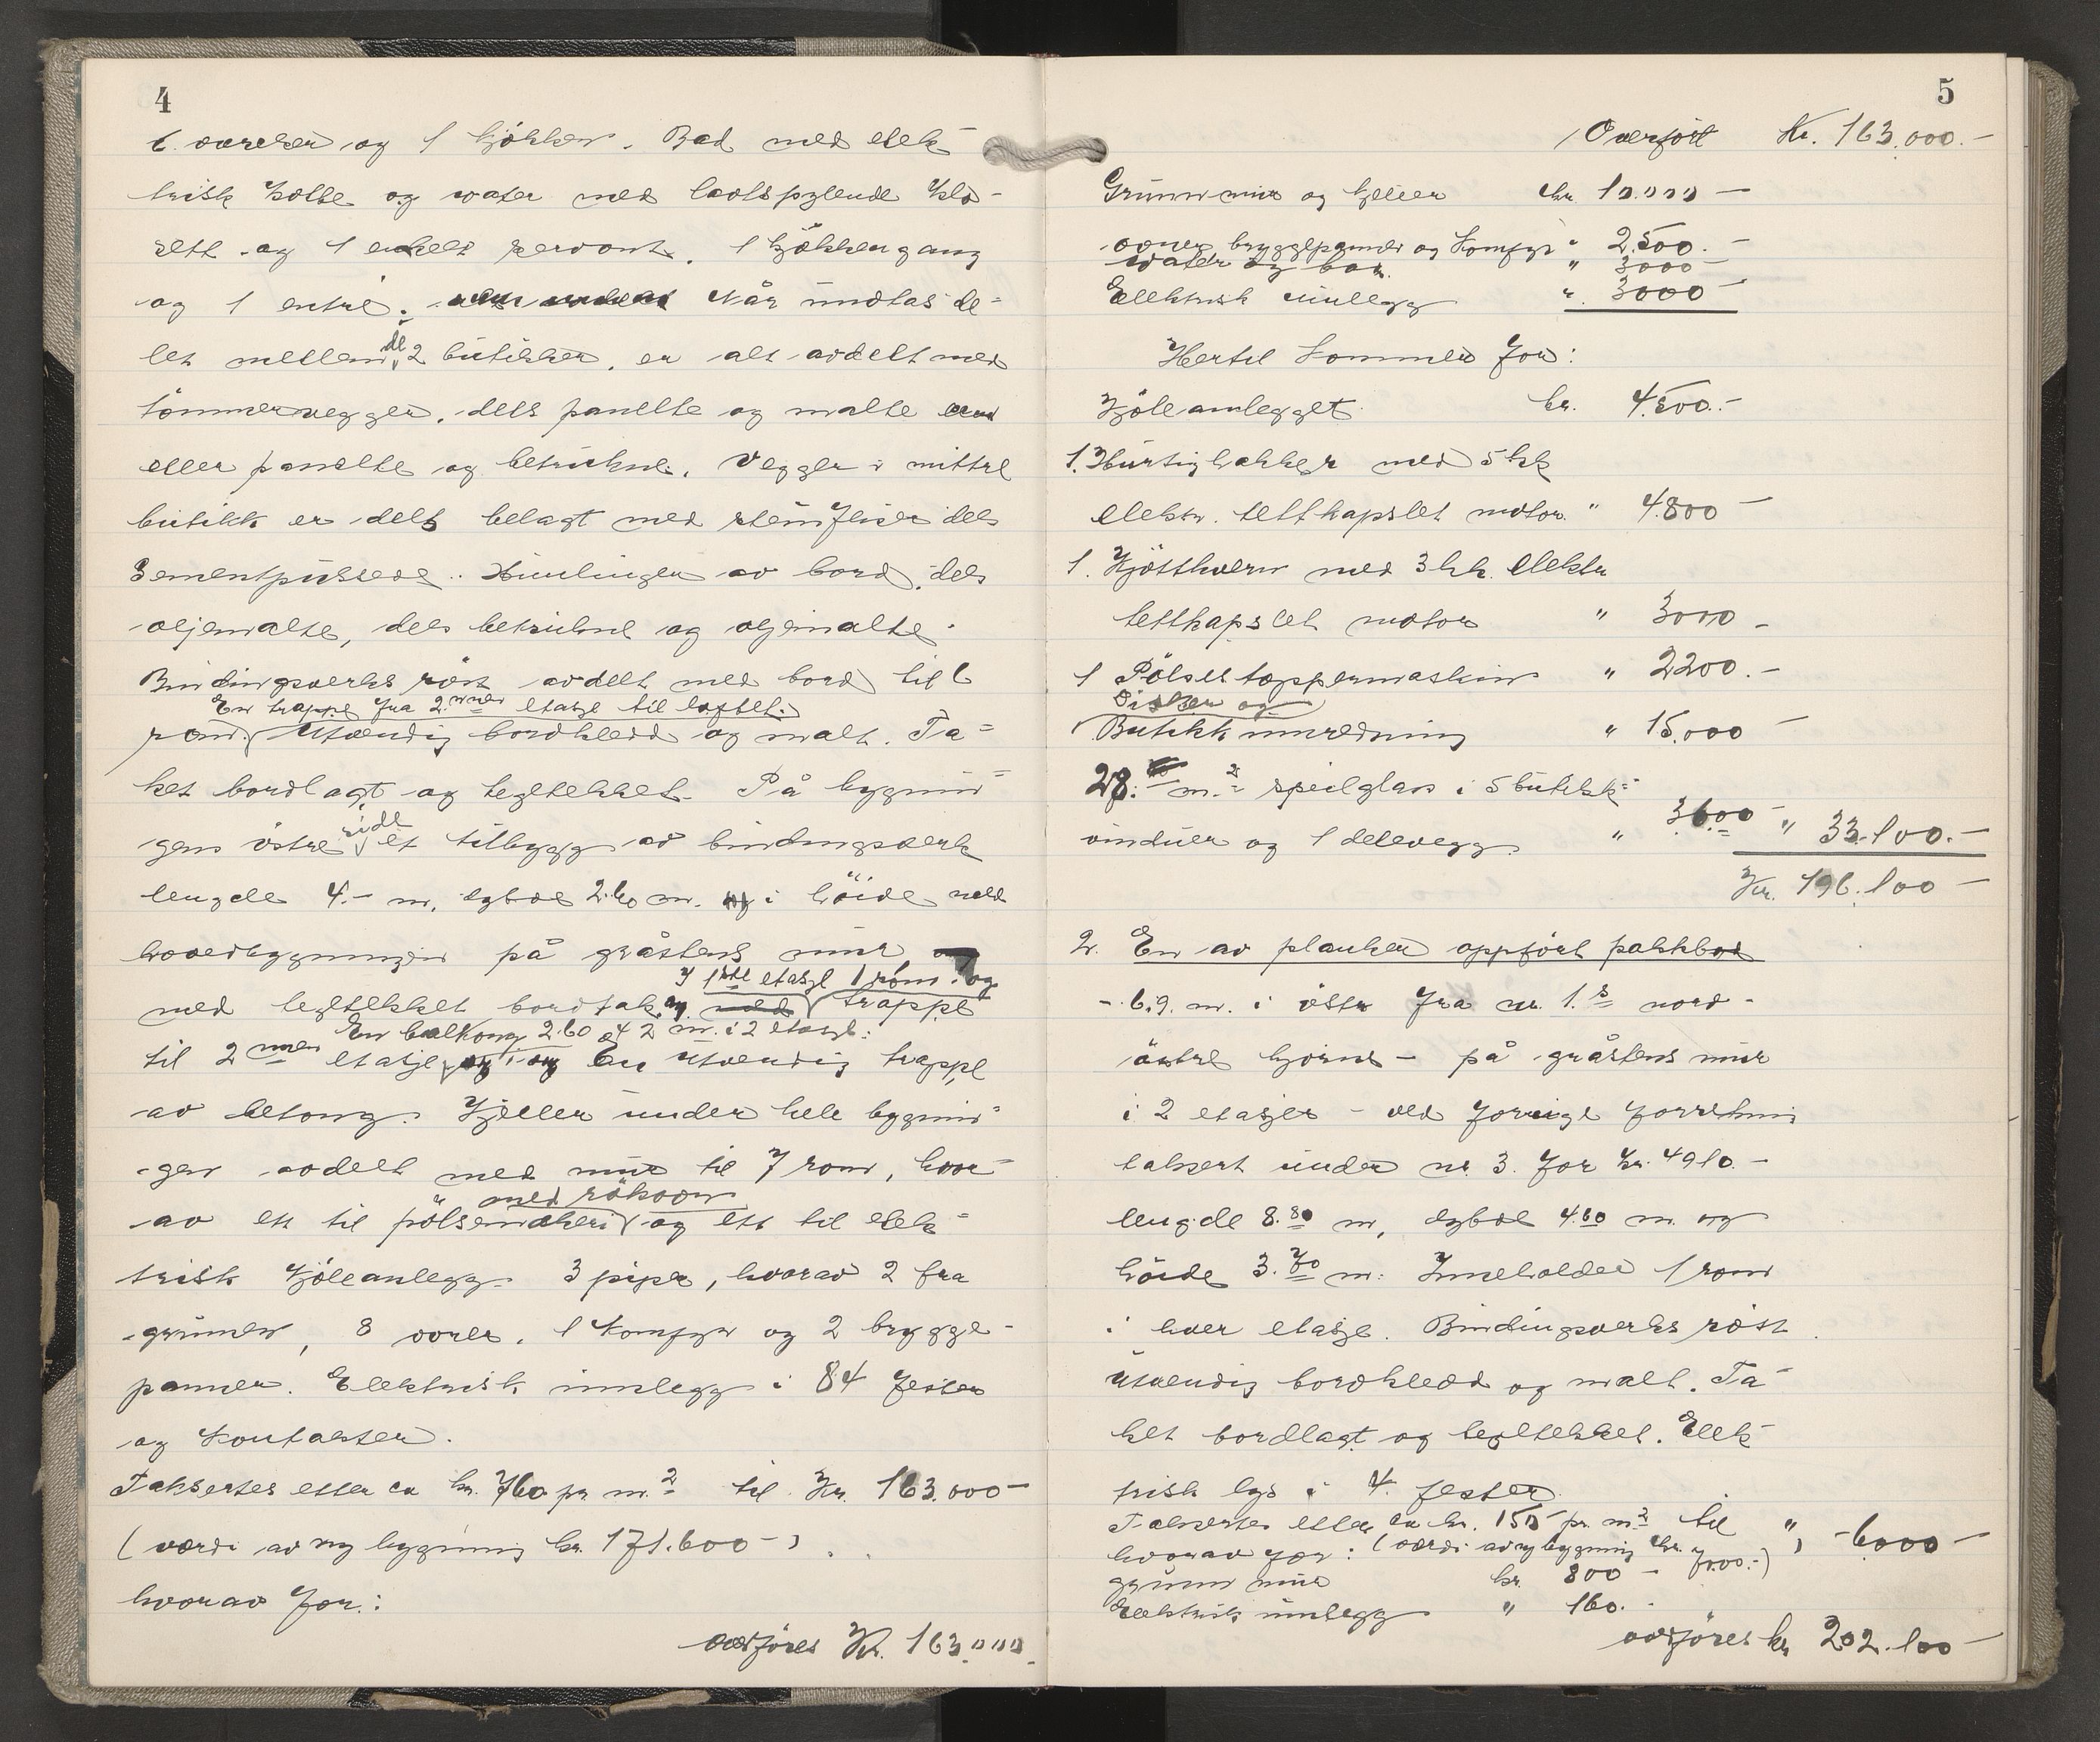 4
6 værelser og 1 kjökken. Bad med elek-
trisk kolbe og water med lavtspylende klo-
sett og 1 enkelt servant. 1 kjökkengang
og 1 entré. Når undtas de-
let mellem de 2 butikker, er alt avdelt med
tömmervegger, dels panelte og malte
eller panelte og betrukne. Vegger i mittre
butikk er dels belagt med stenfliser dels
sementpussede. Himlinger av bord, dels
oljemalte, dels betrukne og oljemalte.
Bindingsverks röst avdelt med bord til 6
En trappe fra 2.nnen etasje til loftet.
rom. Utvendig bordkledd og malt. Ta-
ket bordlagt og tegltekket. På bygnin-
gens östre side et tilbygg av bindingsverk
lengde 4.- m, dybde 2.60 m. i höide med
hovedbygningen på gråstens mur
I 1ste etasje 1 rom og
med tegltekket bordtak. med trappe
En balkong 2.60 x 2 m. i 2 etasje.
til 2nnen etasje og En utvendig trappe
av betong. Kjeller under hele bygnin-
gen avdelt med mur til 7 rom, hvor-
med rökovn
av ett til pölsemakeri og ett til elek-
trisk kjöleanlegg. 3 piper, hvorav 2 fra
grunnen, 8 ovner, 1 komfyr og 2 brygge-
panner. Elektrisk innlegg i 84 fester
og kontakter.
Taksertes efter ca kr. 760 pr m.2 til Kr. 163.000-
(verdi av ny bygning kr. 171.600-)
hvorav for:
overföres Kr. 163.000.
5
Overfört Kr. 163.000.-
Grunnmur og kjeller kr. 10.000-
ovner, bryggepanner og komfyr " 2.500.-
water og bad. " 3000-
Elektrisk innlegg " 3000-
Hertil kommer for:
Kjöleanlegget kr. 4.500.-
1. Hurtighakker med 5 hk
elektr. tettkapslet motor. " 4.800-
1. Kjöttkvern med 3 hk. elektr
tettkapslet motor " 3000-
1 Pölsestoppermaskin " 2200.-
Disker og
Butikkinnredning " 15.000-
28.- m.2 speilglass i 5 butikk-
vinduer og 1 delevegg. " 3600- " 33.100.-
Kr. 196.100-
2. En av planker oppfört pakkbod
- 6.9. m. i östr fra nr. 1.s nord-
östre hjörne - på gråstens mur
i 2 etasjer - ved forrige forretning
taksert under nr. 3. for kr. 4910.-
lengde 8.80 m, dybde 4.60 m. og
höide 3.70 m. Inneholder 1 rom
i hver etasje. Bindingsverks röst
utvendig bordkledd og malt. Ta-
ket bordlagt og tegltekket. Elek-
trisk lys i 4. fester.
Taksertes efter ca kr. 150 pr. m2 til " 6000-
hvorav for: (verdi av ny bygning kr. 7000.-)
grunnmur kr. 800-
Elektrisk innlegg " 160.-
overföres kr 202.100-